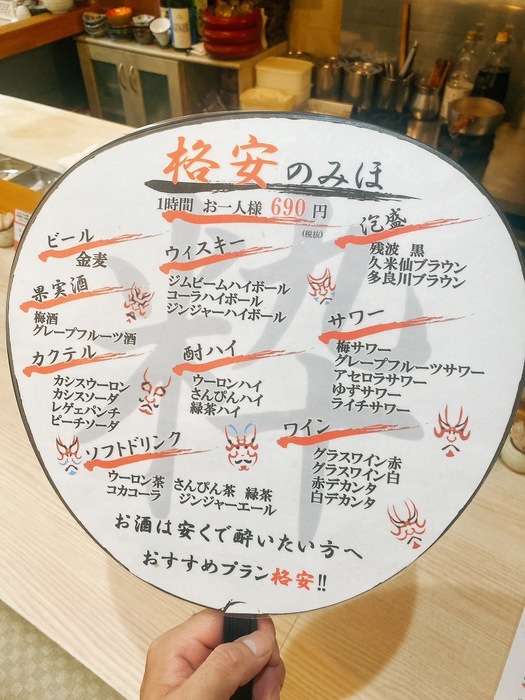 格安のみほ
1時間 お一人様 690 円
(税抜)
ビール
金麦
果実酒
梅酒
グレープフルーツ酒
カクテル
カシスウーロン
カシスソーダ
レゲェパンチ
ピーチソーダ
ウィスキー
ジムビームハイボール
コーラハイボール
ジンジャーハイボール
酎ハイ
ウーロンハイ
さんぴんハイ
緑茶ハイ
泡盛
残波 黒
久米仙ブラウン
多良川ブラウン
サワー
梅サワー
グレープフルーツサワー
アセロラサワー
ゆずサワー
ライチサワー
ワイン
グラスワイン赤
グラスワイン白
赤デカンタ
白デカンタ
ソフトドリンク
ウーロン茶 さんぴん茶 緑茶
コカコーラ ジンジャーエール
粋
お酒は安くで酔いたい方へ
おすすめプラン格安!!